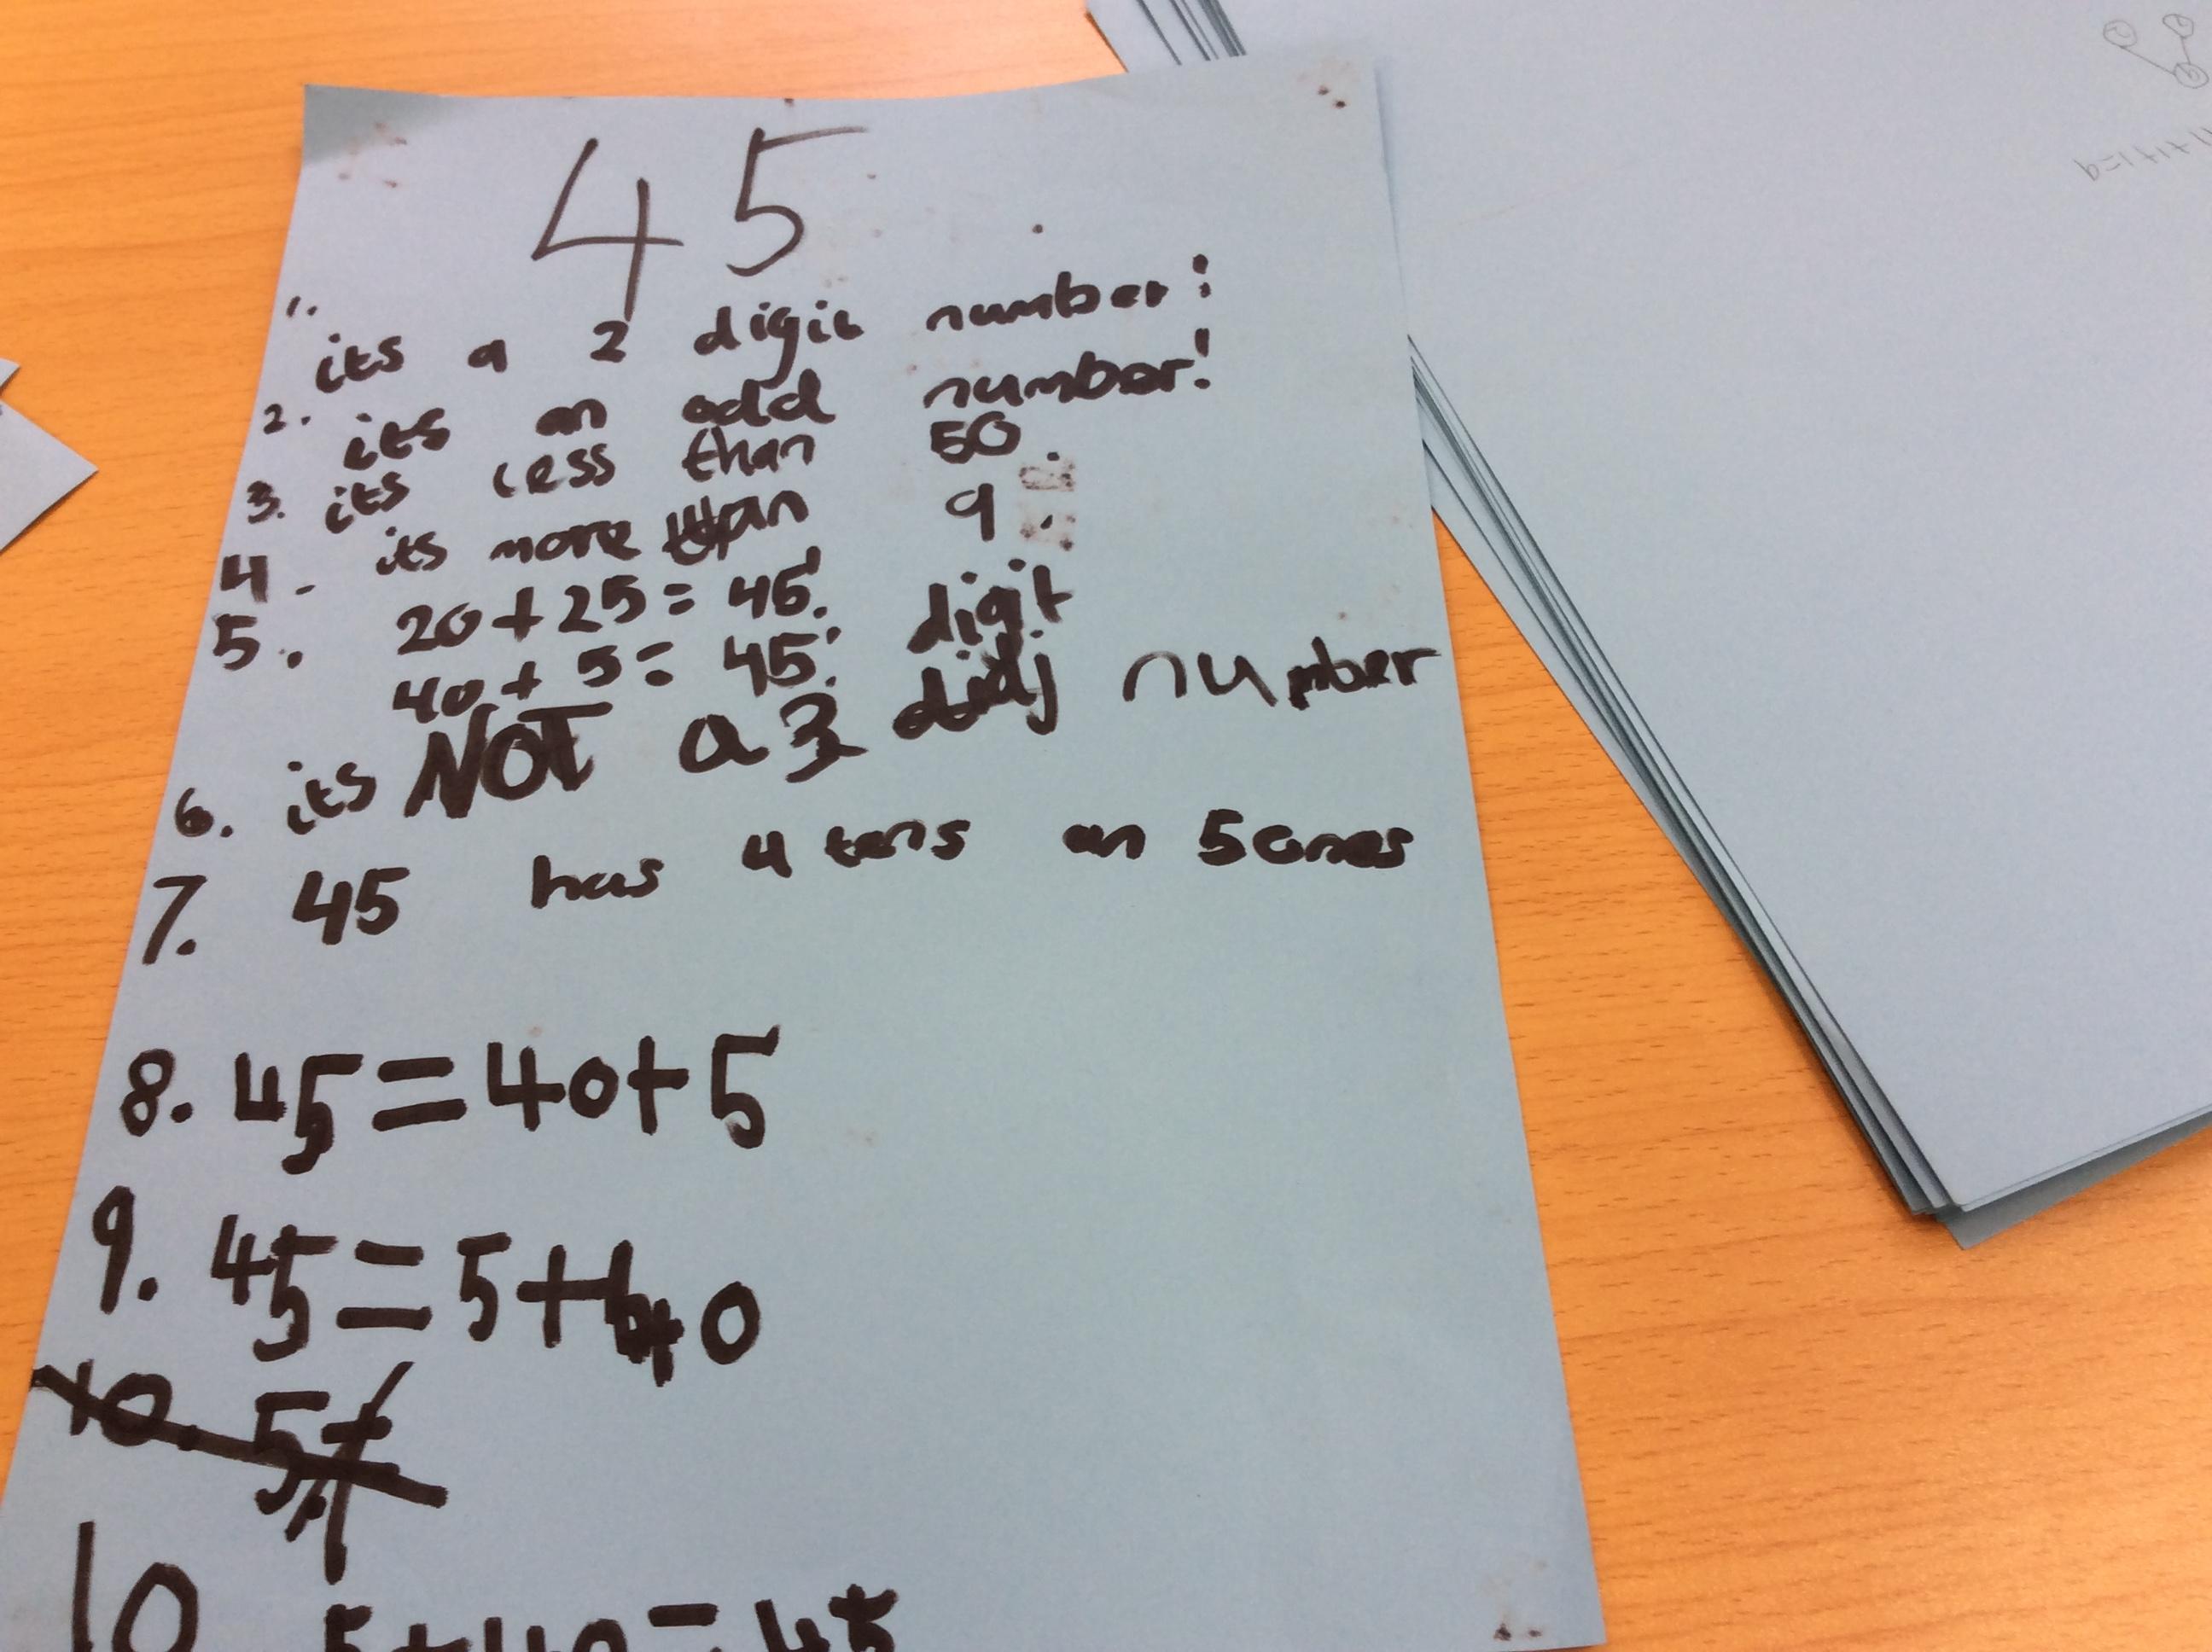 45
1. its a 2 digit number!
2. its an odd number!
3. its less than 50.
4. its more than 9.
5. 20+25=45.
40+5=45.
digit
6. its NOT a 3 number
7. 45 has 4 tens an 5 ones
8. 45=40+5
9. 45=5+40
10. 5+
10 5+40=45